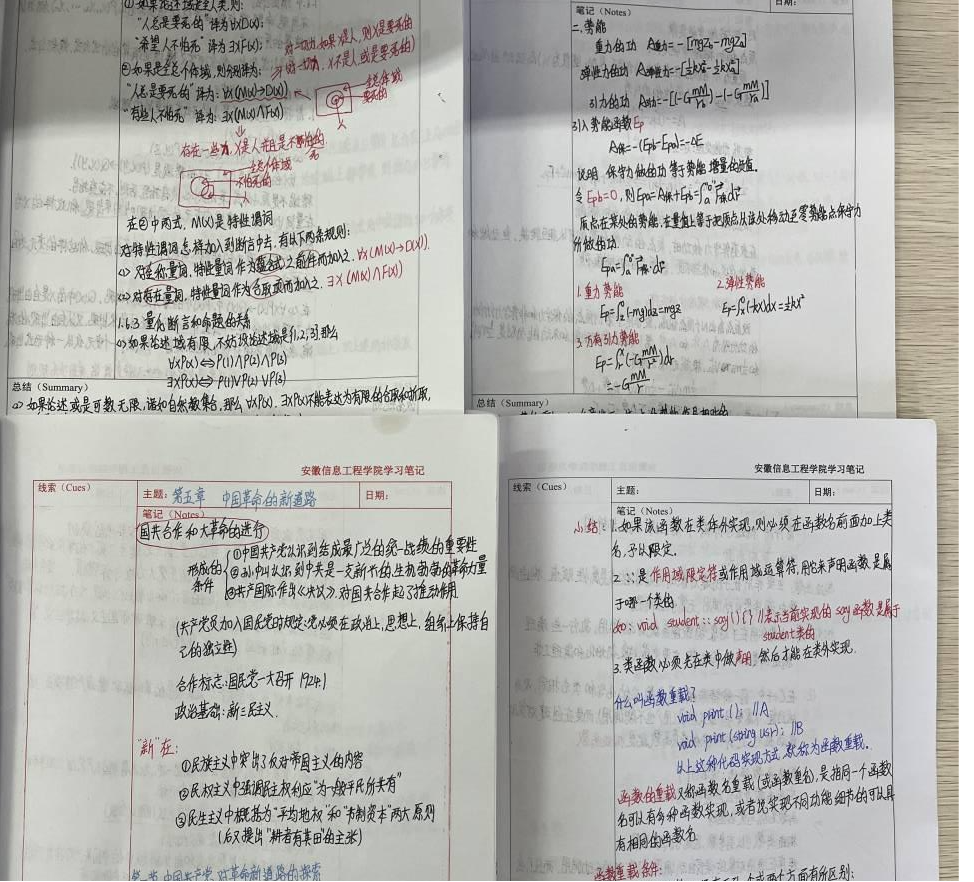 ①如果论述域是全人类,则:
"人总是要死的"译为∀xD(x);
"希望人不怕死"译为∃xF(x);
对一切x,如果x是人,则x是要死的
②如果是全总个体域,则分别译为:
对一切x,x不是人或是要死的
"人总是要死的"译为:∀x(M(x)→D(x))
全总个体域
要死的
人
"有些人不怕死"译为:∃x(M(x)∧F(x))
存在一些x,x是人并且是不怕死的
全总个体域
不怕死的
人
在②中两式,M(x)是特性谓词
对特性谓词怎样加入到断言中去,有以下两条规则:
<1> 对全称量词,特性谓词作为蕴含式之前件而加入之.∀x(M(x)→D(x)).
<2> 对存在量词,特性谓词作为合取项而加入之.∃x(M(x)∧F(x))
1.6.3 量化断言和命题的关系
<1> 如果论述域有限,不妨设论述域是{1,2,3},那么
∀xP(x)⇔P(1)∧P(2)∧P(3)
∃xP(x)⇔P(1)∨P(2)∨P(3)
总结(Summary)
<2> 如果论述域是可数无限,诸如自然数集合,那么∀xP(x).∃xP(x)不能表达为有限的合取和析取,
笔记(Notes)
日期:
二、势能
重力的功 A重力=-[mgZb-mgZa]
弹性力的功 A弹性力=-[½kxb²-½kxa²]
引力的功 A引力=-[(-G mM/rb)-(-G mM/ra)]
引入势能函数Ep
A保=-(Epb-Epa)=-△E
说明 保守力做的功等于势能增量的负值.
令Epb=0,则Epa=A保+Epb=∫a"0" F保·dr
质点在某处的势能,在量值上等于把质点从该处移动至零势能点保守力
所做的功.
Epa=∫a"0" F保·dr
1.重力势能
2.弹性势能
Ep=∫z0(-mg)dz=mgz
Ep=∫x0(-kx)dx=½kx²
3.万有引力势能
Ep=∫r∞(-G mM/r²)dr
=-G mM/r
总结(Summary)
安徽信息工程学院学习笔记
线索(Cues)
主题:第五章 中国革命的新道路
日期:
笔记(Notes)
国共合作和大革命的进行
形成的条件
①中国共产党认识到结成最广泛的统一战线的重要性
②孙中山认识到中共是一支新兴的生机勃勃的革命力量
③共产国际作出《决议》,对国共合作起了推动作用
(共产党员加入国民党时规定:党必须在政治上,思想上,组织上保持自
己的独立性)
合作标志:国民党一大召开 1924.1
政治基础:新三民主义.
"新"在:
①民族主义中突出了反对帝国主义的内容
②民权主义中强调民主权利应"为一般平民所共有"
③民生主义中概括为"平均地权"和"节制资本"两大原则
(后又提出"耕者有其田的主张)
第一节 中国共产党对革命新道路的探索
安徽信息工程学院学习笔记
线索(Cues)
主题:
日期:
笔记(Notes)
小结:
1.如果该函数在类体外实现,则必须在函数名前面加上类
名,予以限定.
2. :: 是作用域限定符或作用域运算符,用它来声明函数是属
于哪一个类的
如:void student::say(){} //表示当前实现的say函数是属于
student类的
3.类函数必须先在类中做声明,然后才能在类外实现.
什么叫函数重载?
void print(); //A
void print(string usr); //B
以上这种代码实现方式,就称为函数重载.
函数的重载又称函数名重载(或函数重名),是指同一个函数
名可以有多种函数实现,或者说实现不同功能细节的可以具
有相同的函数名
函数重载条件:
个或两个方面有所区别: